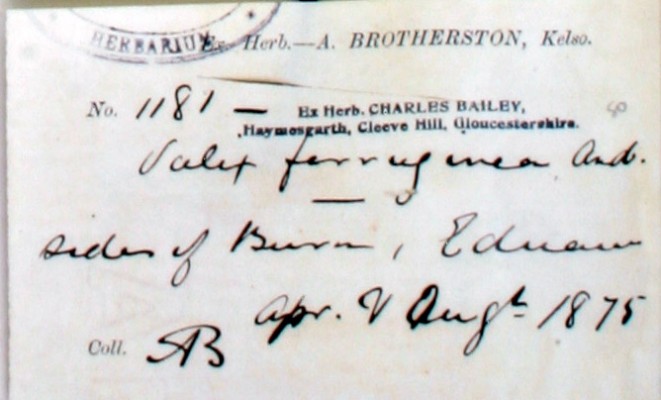 HERBARIUM
Ex Herb.—A. BROTHERSTON, Kelso.
No. 1181 — Ex Herb. CHARLES BAILEY,
Haymesgarth, Cleeve Hill, Gloucestershire.
Salix ferruginea And.
—
sides of Burn, Ednam
Apr. & Augt 1875
Coll. AB